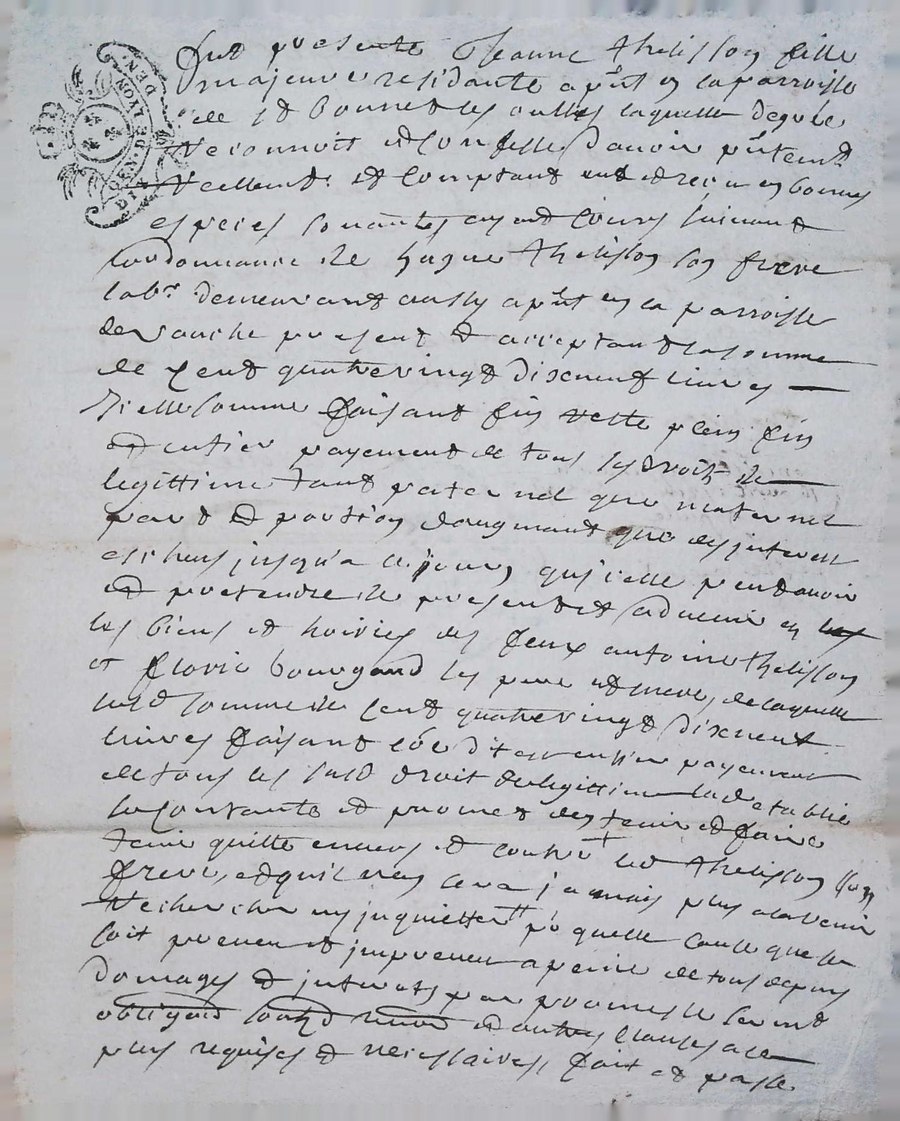 DIX DEN. GEN. DE LYON. DEN.
Fut presente Jeanne Thelisson fille
majeure residante a pñt en la parroisse
de St Bonnet les oulles laquelle de gré
Reconnoit et confesse d'avoir
Reellemt. et comptant eu et receu en bonnes
especes sonantes ayant cours suivant
lordonnance de hugue Thelisson son frere
labr. demeurant aussy a pñt en la parroisse
de vauche present et acceptant la somme
de Cent quatrevingt dixneuf livres
Icelle somme faisant fin reste plein fin
et entier payement de tous les droits de
legittime tant paternel que maternel
part et portion daugmant que des interest
escheus jusqu'a ce jours qu'icelle peut avoir
et pretendre de present et advenir en
les biens et hoiries des feux antoine Thelisson
et florie bourgand les pere et mere, de laquelle
susd. somme de Cent quatrevingt dixneuf
livres faisant entier payement
de tous les susd. droit de legittime lad. etablie
se contante et promet den tenir et faire
tenir quitte envers et contre led. Thelisson son
frere, et quil nen sera jamais plus a lavenir
Recherché ny inquietter pr. quelle cause que se
soit preveu et impreveu a peine de tous depens
domages et interets par promesse serment
obligaõn soubd. et autres clauses a ce
plus requises et necessaires, fait et passe